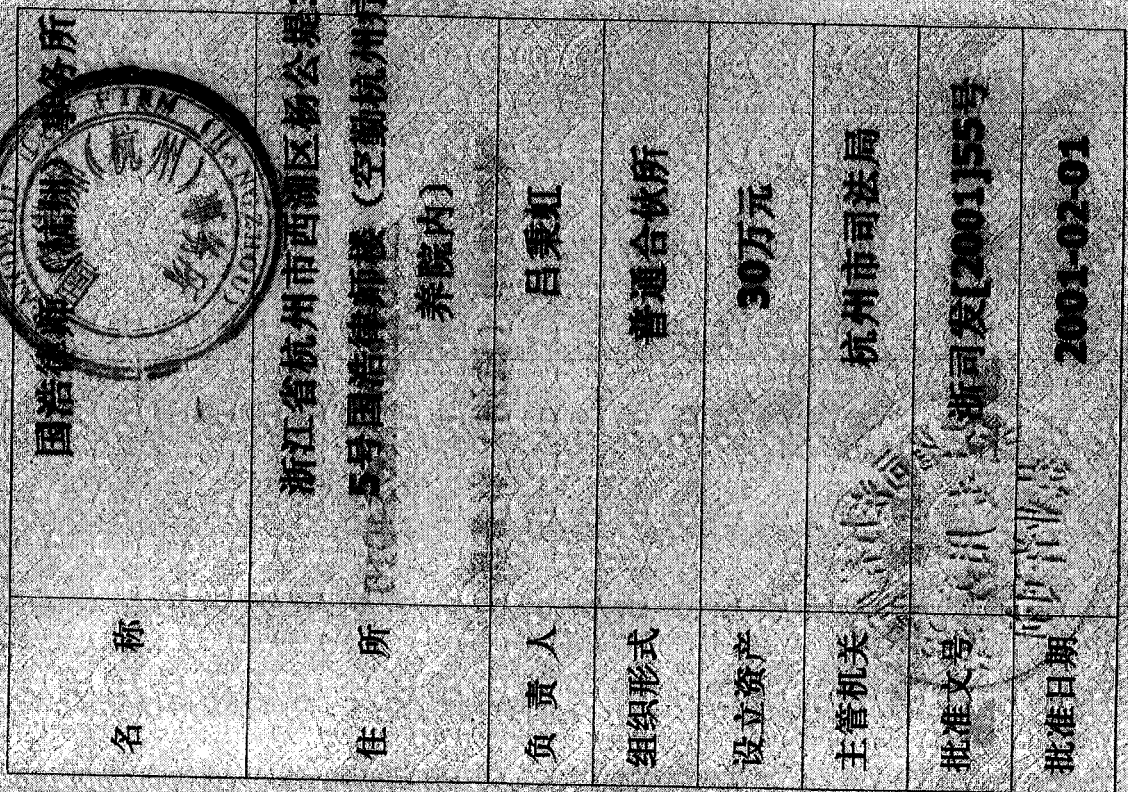 名 称 国浩律师（杭州）事务所
住 所 浙江省杭州市西湖区杨公堤
5号国浩律师楼（空勤杭州疗
养院内）
负 责 人 吕秉虹
组织形式 普通合伙所
设立资产 30万元
主管机关 杭州市司法局
批准文号 浙司发[2001]55号
批准日期 2001-02-01
FIRM (HANGZHOU)
（杭州）事务所